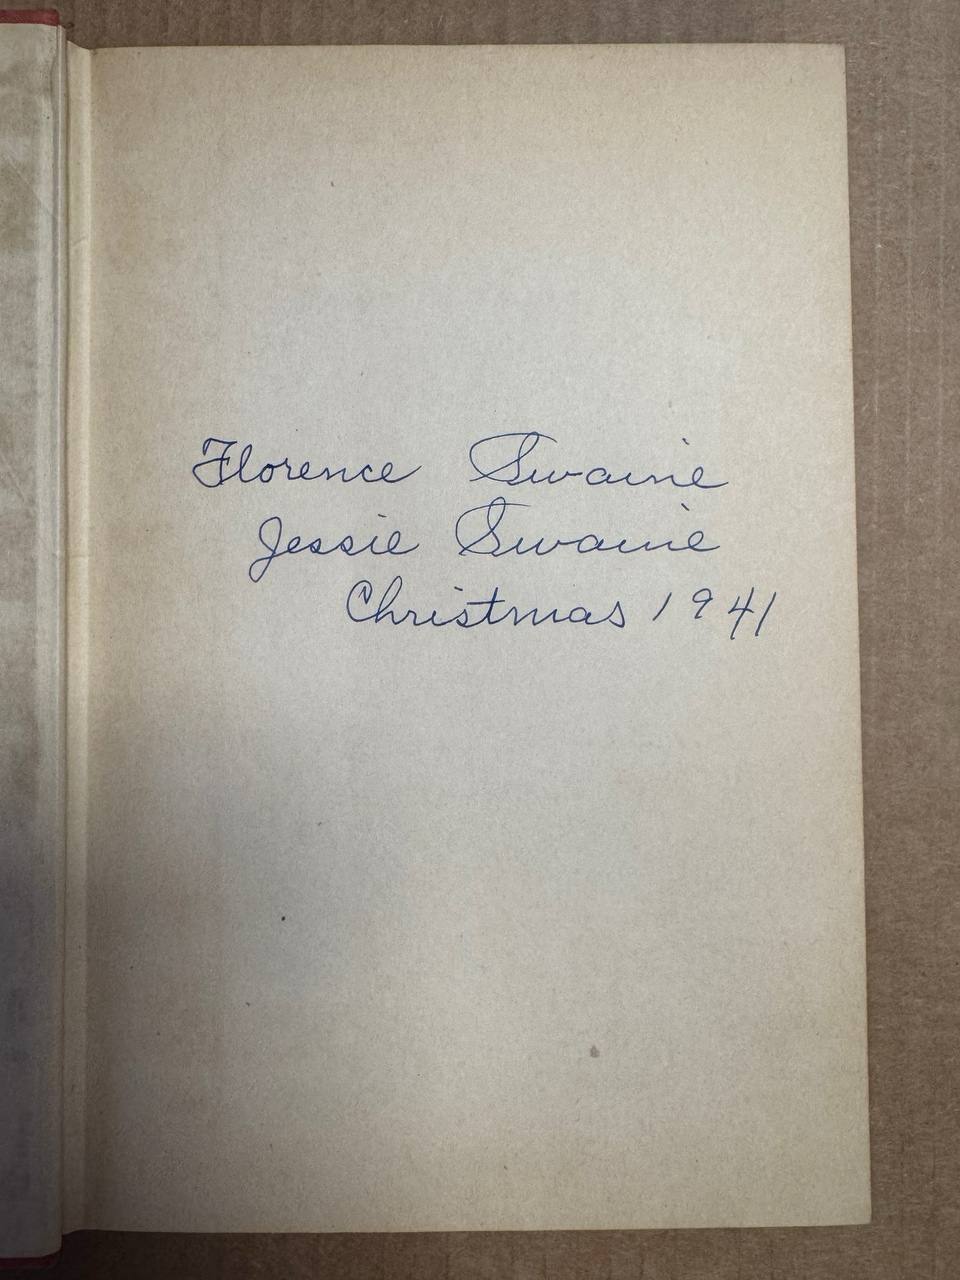 Florence Swaine
Jessie Swaine
Christmas 1941